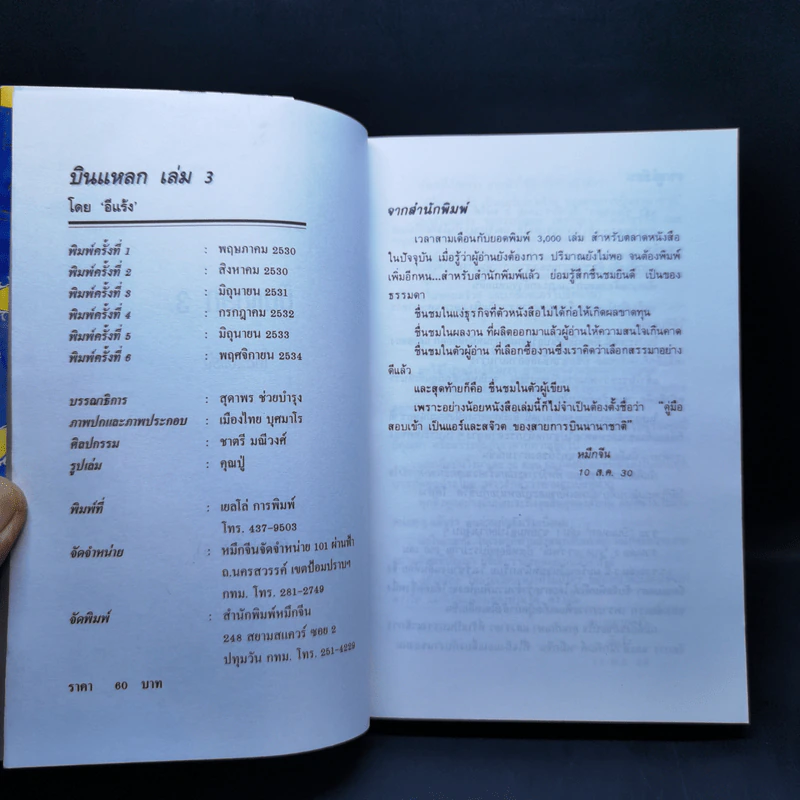 บินแหลก เล่ม 3
โดย 'อีแร้ง'
พิมพ์ครั้งที่ 1 : พฤษภาคม 2530
พิมพ์ครั้งที่ 2 : สิงหาคม 2530
พิมพ์ครั้งที่ 3 : มิถุนายน 2531
พิมพ์ครั้งที่ 4 : กรกฎาคม 2532
พิมพ์ครั้งที่ 5 : มิถุนายน 2533
พิมพ์ครั้งที่ 6 : พฤศจิกายน 2534
บรรณาธิการ : สุดาพร ช่วยบำรุง
ภาพปกและภาพประกอบ : เมืองไทย บุศมาโร
ศิลปกรรม : ชาตรี มณีวงศ์
รูปเล่ม : คุณปู่
พิมพ์ที่ : เยลโล่ การพิมพ์
โทร. 437-9503
จัดจำหน่าย : หมึกจีนจัดจำหน่าย 101 ผ่านฟ้า
ถ.นครสวรรค์ เขตป้อมปราบฯ
กทม. โทร. 281-2749
จัดพิมพ์ : สำนักพิมพ์หมึกจีน
248 สยามสแควร์ ซอย 2
ปทุมวัน กทม. โทร. 251-4229
ราคา 60 บาท
จากสำนักพิมพ์
เวลาสามเดือนกับยอดพิมพ์ 3,000 เล่ม สำหรับตลาดหนังสือ
ในปัจจุบัน เมื่อรู้ว่าผู้อ่านยังต้องการ ปริมาณยังไม่พอ จนต้องพิมพ์
เพิ่มอีกหน...สำหรับสำนักพิมพ์แล้ว ย่อมรู้สึกชื่นชมยินดี เป็นของ
ธรรมดา
ชื่นชมในแง่ธุรกิจที่ตัวหนังสือไม่ได้ก่อให้เกิดผลขาดทุน
ชื่นชมในผลงาน ที่ผลิตออกมาแล้วผู้อ่านให้ความสนใจเกินคาด
ชื่นชมในตัวผู้อ่าน ที่เลือกซื้องานซึ่งเราคิดว่าเลือกสรรมาอย่าง
ดีแล้ว
และสุดท้ายก็คือ ชื่นชมในตัวผู้เขียน
เพราะอย่างน้อยหนังสือเล่มนี้ก็ไม่จำเป็นต้องตั้งชื่อว่า "คู่มือ
สอบเข้า เป็นแอร์และสจ๊วต ของสายการบินนานาชาติ"
หมึกจีน
10 ส.ค. 30